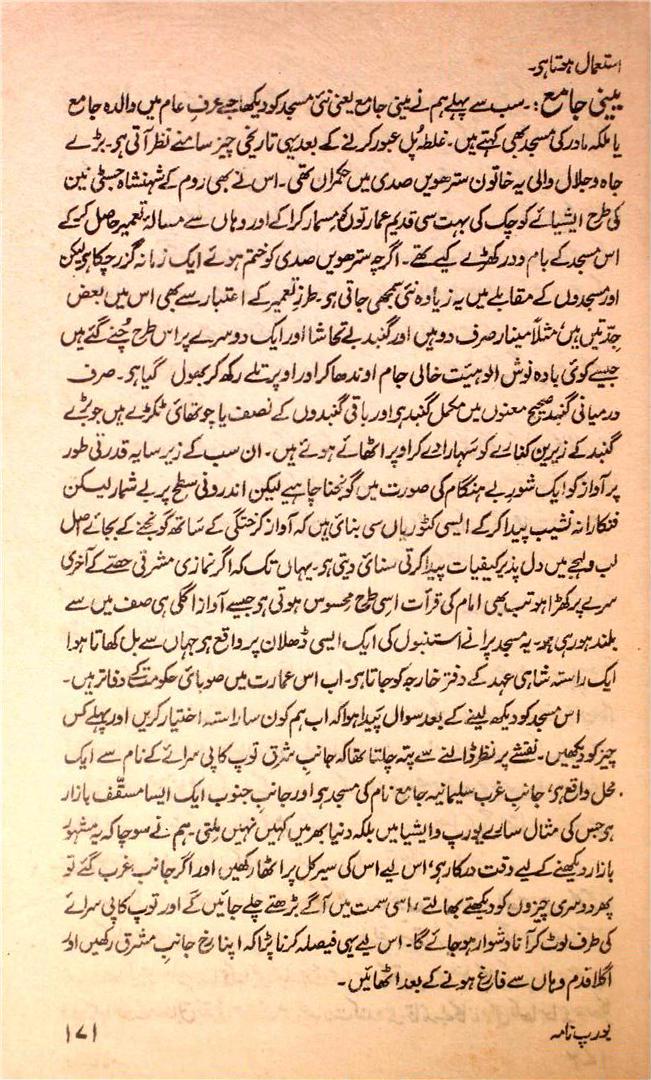 استعمال ہوتا ہی۔
یینی جامع :۔ سب سے پہلے ہم نے یینی جامع یعنی نئی مسجد کو دیکھا جسے عرفِ عام میں والدہ جامع
یا ملکہ مادر کی مسجد بھی کہتے ہیں۔ غلطہ پُل عبور کرنے کے بعد یہی تاریخی چیز سامنے نظر آتی ہی۔ بڑے
جاہ و جلال والی یہ خاتون سترھویں صدی میں حکمراں تھی۔ اس نے بھی روم کے شہنشاہ جسٹی نین
کی طرح ایشیائے کوچک کی بہت سی قدیم عمارتوں کو مسمار کرا کے اور وہاں سے مسالۂ تعمیر حاصل کر کے
اس مسجد کے بام و در کھڑے کیے تھے۔ اگرچہ سترھویں صدی کو ختم ہوئے ایک زمانہ گزر چکا ہی لیکن
اور مسجدوں کے مقابلے میں یہ زیادہ نئی سمجھی جاتی ہی۔ طرزِ تعمیر کے اعتبار سے بھی اس میں بعض
جدّتیں ہیں، مثلاً مینار صرف دو ہیں اور گنبد بے تحاشا اور ایک دوسرے پر اس طرح چُنے گئے ہیں
جیسے کوئی بادہ نوش الوہیت خالی جام اوندھا کر اور اوپر تلے رکھ کر بھول گیا ہی۔ صرف
درمیانی گنبد صحیح معنوں میں مکمل گنبد ہی اور باقی گنبدوں کے نصف یا چوتھائی ٹکڑے ہیں جو بڑے
گنبد کے زیرین کنارے کو سہارا دے کر اوپر اٹھائے ہوئے ہیں۔ ان سب کے زیر سایہ قدرتی طور
پر آواز کو ایک شورِ بے ہنگام کی صورت میں گونجنا چاہیے لیکن اندرونی سطح پر بے شمار لیکن
فنکارانہ نشیب پیدا کر کے ایسی کٹوریاں سی بنائی ہیں کہ آواز کرختگی کے ساتھ گونجنے کے بجائے اصل
لب و لہجے میں دل پذیر کیفیات پیدا کرتی سنائی دیتی ہی۔ یہاں تک کہ اگر نمازی مشرقی حصّے کے آخری
سرے پر کھڑا ہو تب بھی امام کی قرأت اسی طرح محسوس ہوتی ہی جیسے آواز اگلی ہی صف میں سے
بلند ہو رہی ہو۔ یہ مسجد پرانے استنبول کی ایک ایسی ڈھلان پر واقع ہی جہاں سے بل کھاتا ہوا
ایک راستہ شاہی عہد کے دفتر خارجہ کو جاتا ہی۔ اب اس عمارت میں صوبائی حکومت کے دفاتر ہیں۔
اس مسجد کو دیکھ لینے کے بعد سوال پیدا ہوا کہ اب ہم کون سا راستہ اختیار کریں اور پہلے کس
چیز کو دیکھیں۔ نقشے پر نظر ڈالنے سے پتہ چلتا تھا کہ جانبِ مشرق توپ کاپی سرائے کے نام سے ایک
محل واقع ہی، جانب غرب سلیمانیہ جامع نام کی مسجد ہی اور جانبِ جنوب ایک ایسا مسقّف بازار
ہی جس کی مثال سارے یورپ و ایشیا میں بلکہ دنیا بھر میں کہیں نہیں ملتی۔ ہم نے سوچا کہ یہ مشہور
بازار دیکھنے کے لیے وقت درکار ہی، اس لیے اس کی سیر کل پر اٹھا رکھیں اور اگر جانب غرب گئے تو
پھر دوسری چیزوں کو دیکھتے بھالتے، اسی سمت میں آگے بڑھتے چلے جائیں گے اور توپ کاپی سرائے
کی طرف لوٹ کر آنا دشوار ہو جائے گا۔ اس لیے یہی فیصلہ کرنا پڑا کہ اپنا رخ جانبِ مشرق رکھیں اور
اگلا قدم وہاں سے فارغ ہونے کے بعد اٹھائیں۔
یورپ نامہ
۱۷۱